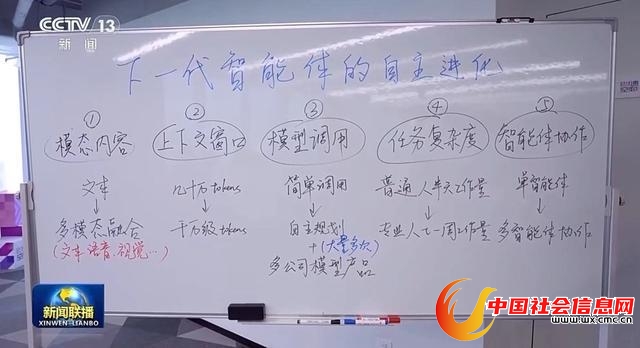 CCTV 13
新闻
下一代智能体的自主进化
① ② ③ ④ ⑤
模态内容 上下文窗口 模型调用 任务复杂度 智能体协作
文本 几十万tokens 简单调用 普通人半天工作量 单智能体
多模态融合 千万级tokens 自主规划 专业人士一周工作量 多智能体协作
(文本、语音、视觉…) + (大量多次)
多公司模型产品
新闻联播
XINWEN-LIANBO
中国社会信息网
www.wxcmc.cn